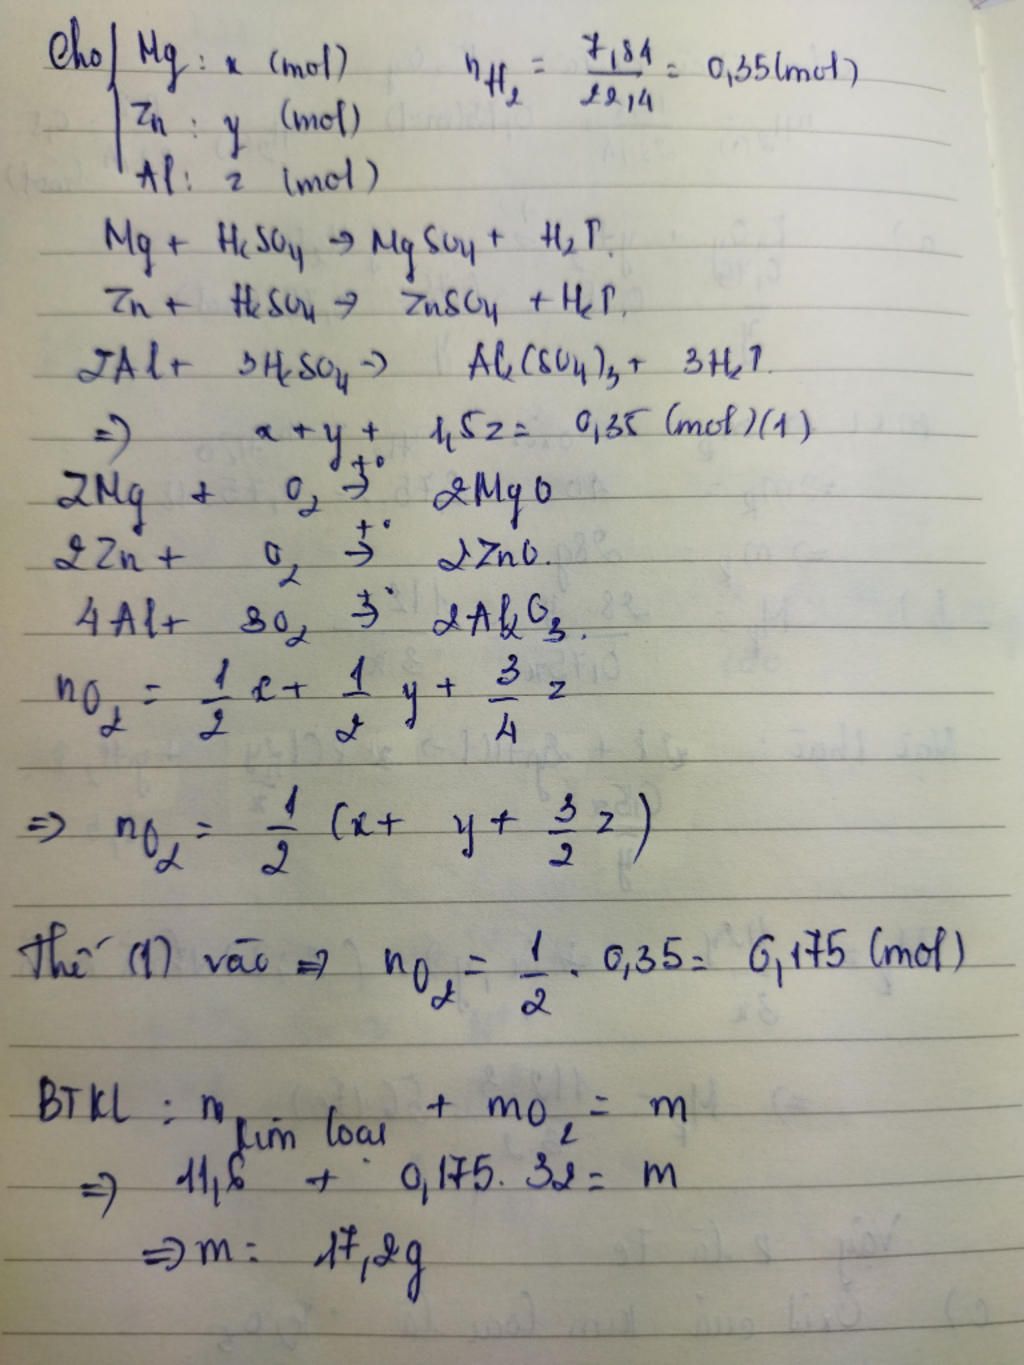 Cho Mg: x (mol) nH2 = 7,84/22,4 = 0,35(mol)
Zn : y (mol)
Al: z (mol)
Mg + H2SO4 → MgSO4 + H2↑.
Zn + H2SO4 → ZnSO4 + H2↑.
2Al + 3H2SO4 → Al2(SO4)3 + 3H2↑.
=> x + y + 1,5z = 0,35 (mol)(1)
2Mg + O2 t°→ 2MgO
2Zn + O2 t°→ 2ZnO.
4Al + 3O2 t°→ 2Al2O3.
nO2 = 1/2 x + 1/2 y + 3/4 z
=> nO2 = 1/2 (x + y + 3/2 z)
Thế (1) vào => nO2 = 1/2 . 0,35 = 0,175 (mol)
BTKL : m kim loại + mO2 = m
=> 11,6 + 0,175. 32 = m
=> m = 17,2g